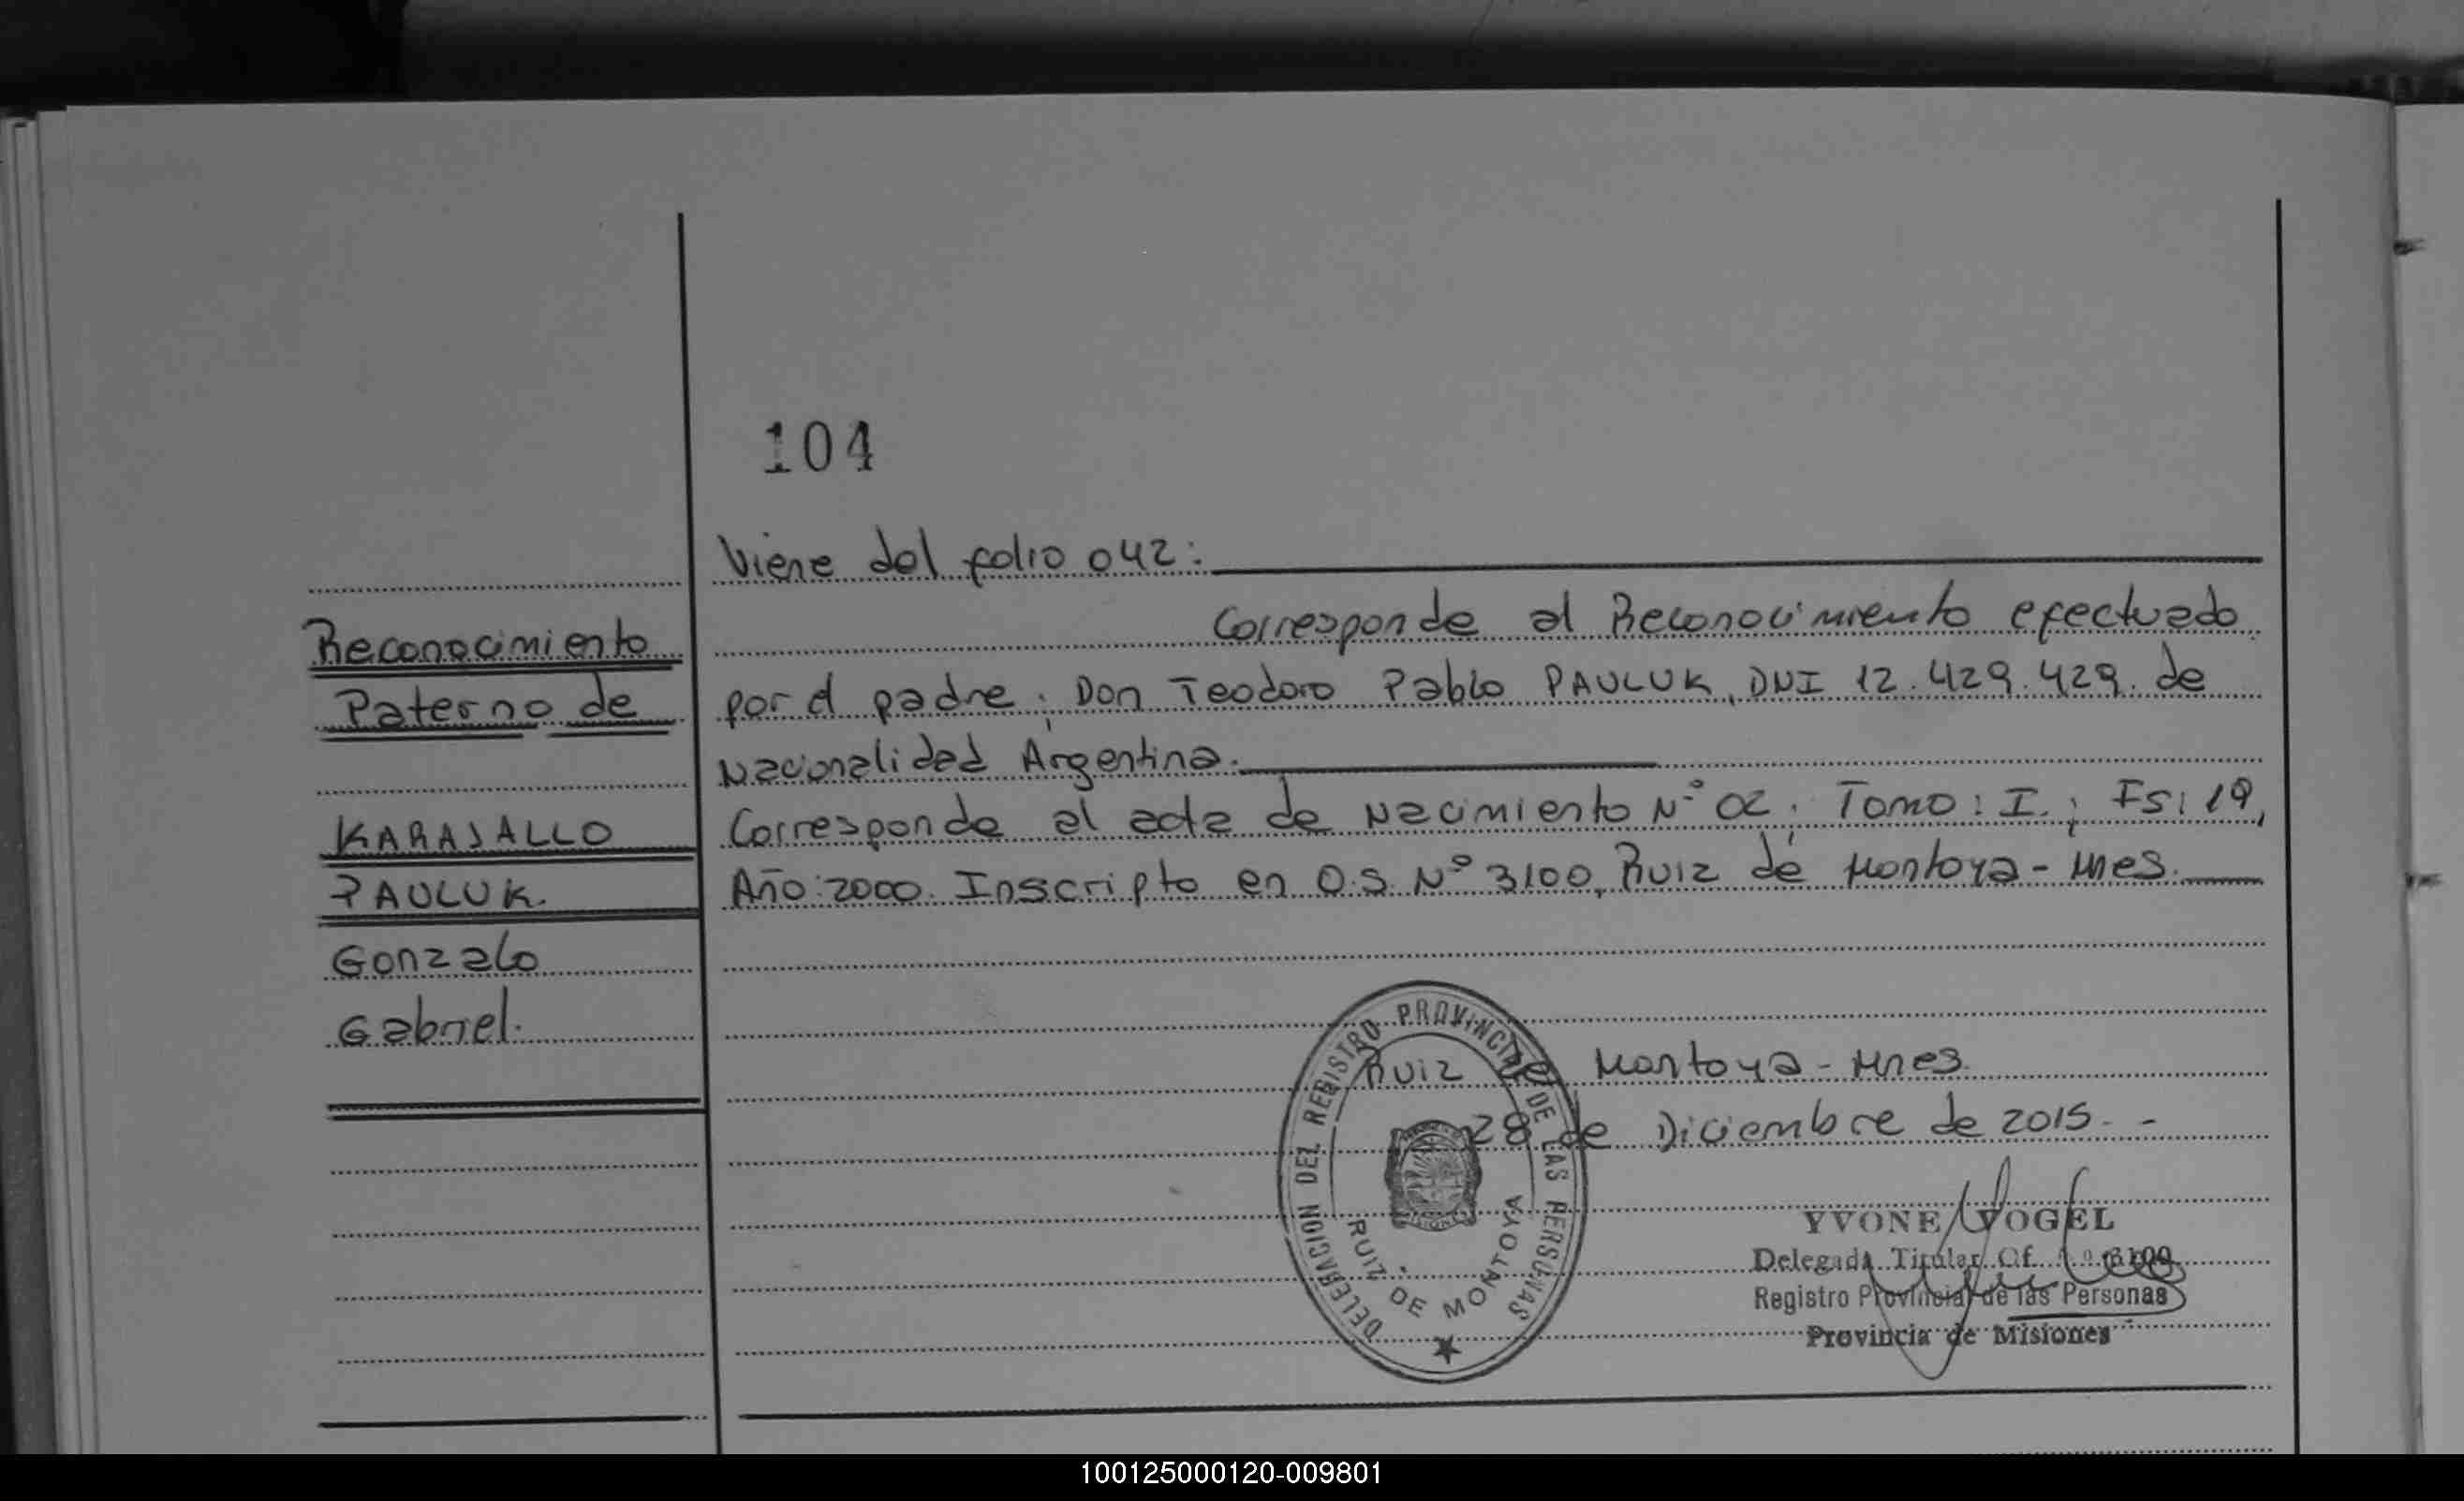 104
Viene del folio 042:
Reconocimiento
Paterno de
KARAJALLO
PAULUK.
Gonzalo
Gabriel.
Corresponde al Reconocimiento efectuado
por el padre; Don Teodoro Pablo PAULUK, DNI 12.429.429. de
Nacionalidad Argentina.
Corresponde al acta de Nacimiento Nº 02. Tomo: I.; Fs: 19,
Año: 2000. Inscripto en O.S. Nº 3100, Ruiz de Montoya - Mnes.
Ruiz de Montoya - Mnes.
28 de Diciembre de 2015. -
DELEGACION DEL REGISTRO PROVINCIAL DE LAS PERSONAS
RUIZ DE MONTOYA
YVONE VOGEL
Delegada Titular Of. 3100
Registro Provincial de las Personas
Provincia de Misiones
100125000120-009801